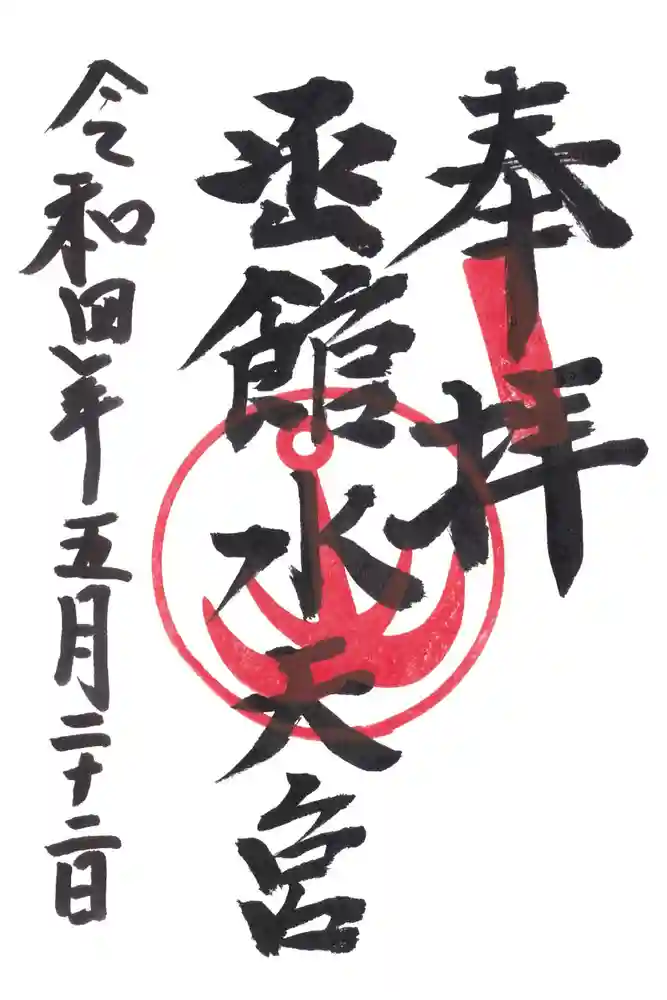 奉拝
函館水天宮
令和四年五月二十二日